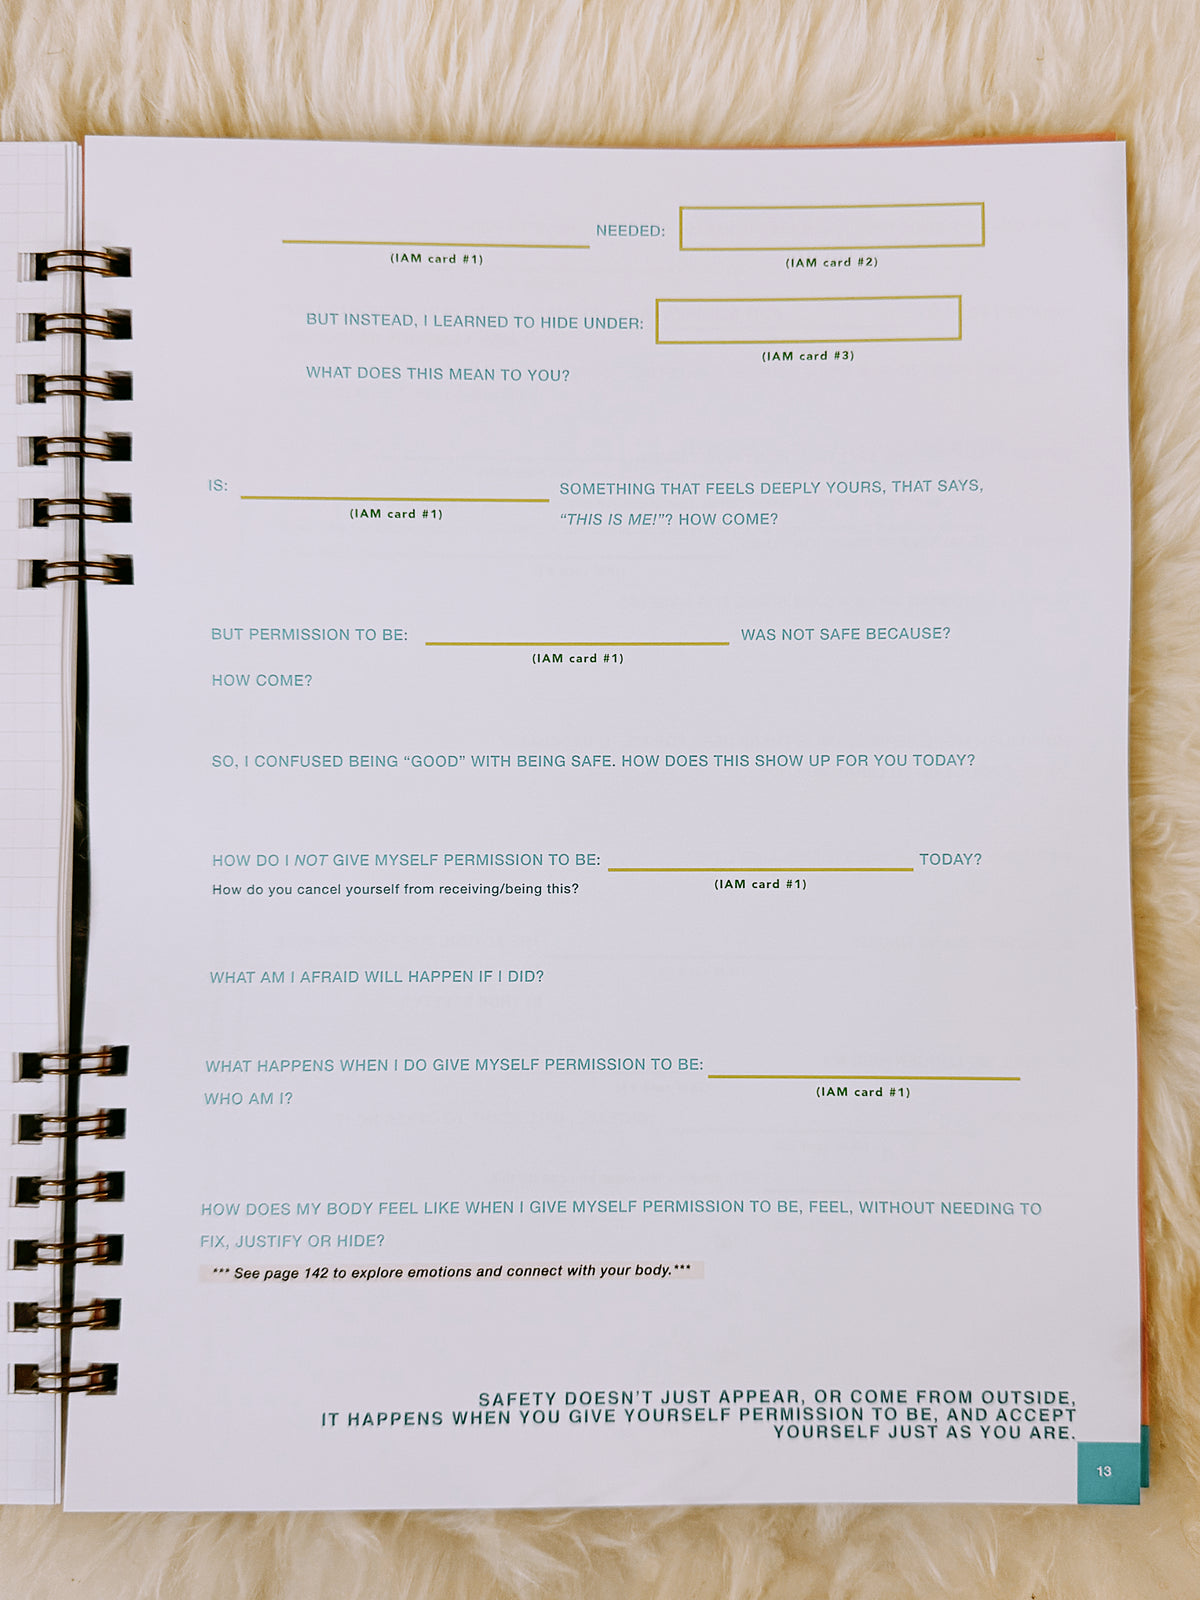 NEEDED:
(IAM card #1)
(IAM card #2)
BUT INSTEAD, I LEARNED TO HIDE UNDER:
(IAM card #3)
WHAT DOES THIS MEAN TO YOU?
IS:
SOMETHING THAT FEELS DEEPLY YOURS, THAT SAYS,
(IAM card #1)
“THIS IS ME!”? HOW COME?
BUT PERMISSION TO BE: WAS NOT SAFE BECAUSE?
(IAM card #1)
HOW COME?
SO, I CONFUSED BEING “GOOD” WITH BEING SAFE. HOW DOES THIS SHOW UP FOR YOU TODAY?
HOW DO I NOT GIVE MYSELF PERMISSION TO BE: TODAY?
(IAM card #1)
How do you cancel yourself from receiving/being this?
WHAT AM I AFRAID WILL HAPPEN IF I DID?
WHAT HAPPENS WHEN I DO GIVE MYSELF PERMISSION TO BE:
(IAM card #1)
WHO AM I?
HOW DOES MY BODY FEEL LIKE WHEN I GIVE MYSELF PERMISSION TO BE, FEEL, WITHOUT NEEDING TO
FIX, JUSTIFY OR HIDE?
*** See page 142 to explore emotions and connect with your body.***
SAFETY DOESN’T JUST APPEAR, OR COME FROM OUTSIDE,
IT HAPPENS WHEN YOU GIVE YOURSELF PERMISSION TO BE, AND ACCEPT
YOURSELF JUST AS YOU ARE.
13